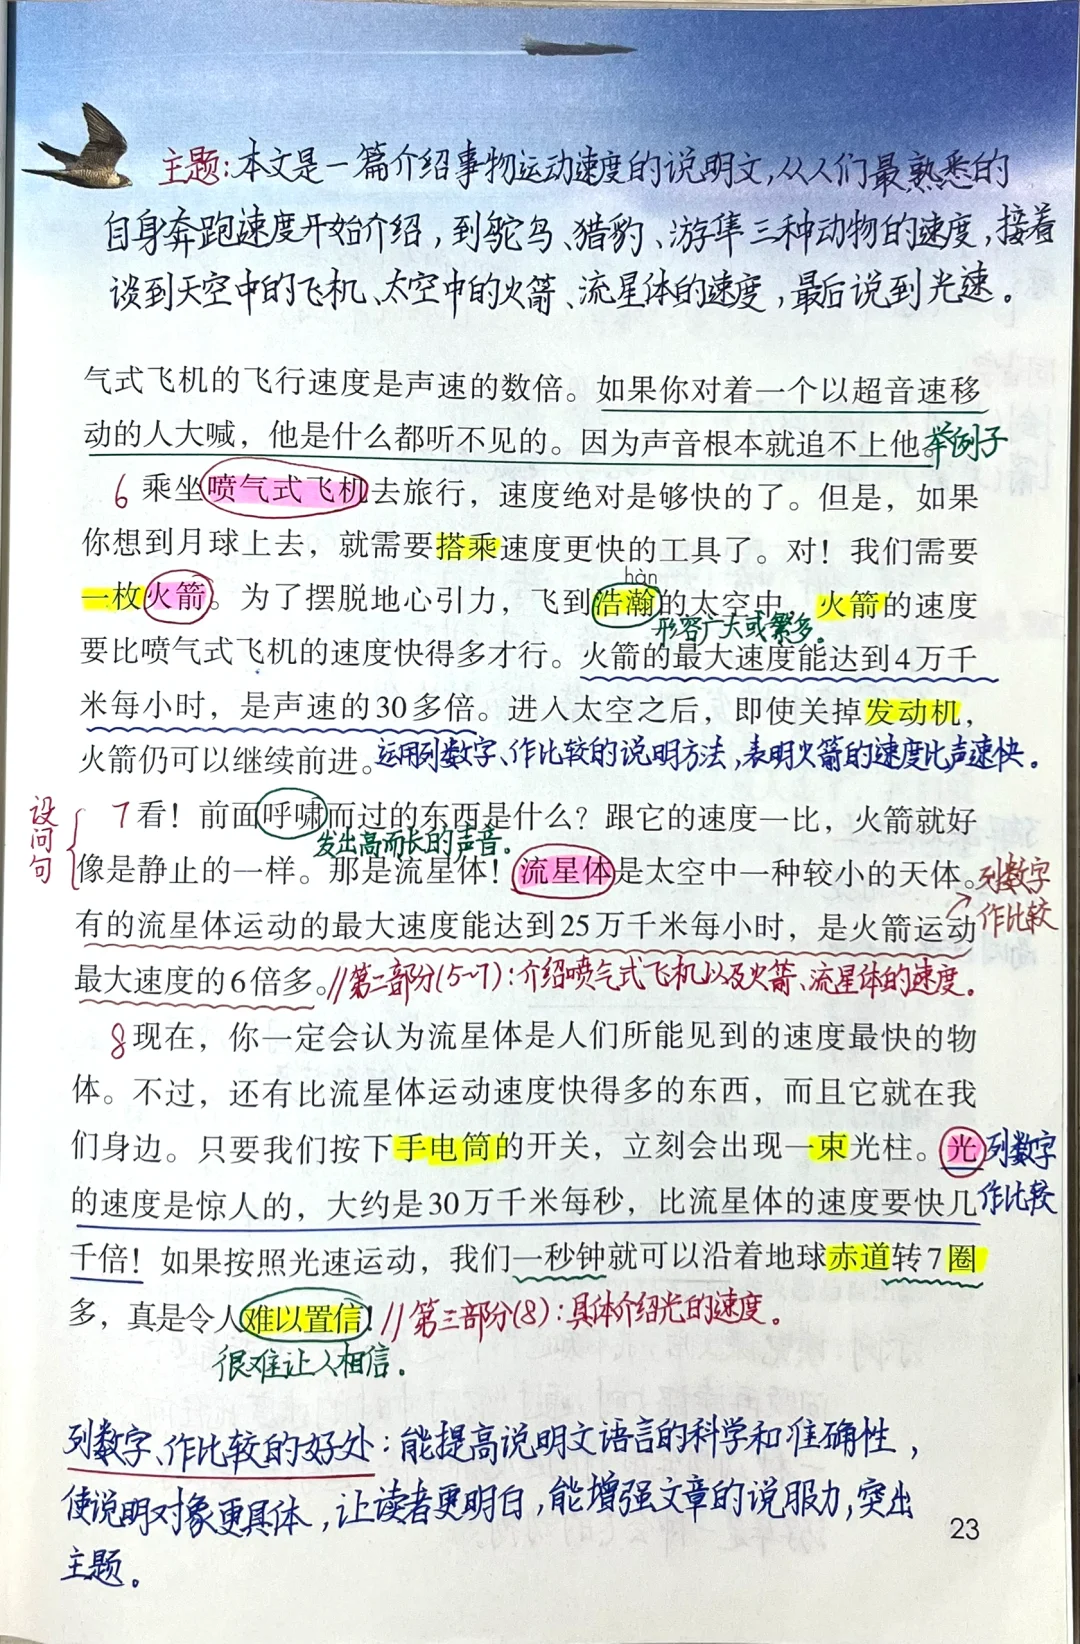 主题:本文是一篇介绍事物运动速度的说明文,从人们最熟悉的
自身奔跑速度开始介绍,到鸵鸟、猎豹、游隼三种动物的速度,接着
谈到天空中的飞机、太空中的火箭、流星体的速度,最后说到光速。
气式飞机的飞行速度是声速的数倍。如果你对着一个以超音速移
动的人大喊,他是什么都听不见的。因为声音根本就追不上他。举例子
6 乘坐喷气式飞机去旅行,速度绝对是够快的了。但是,如果
你想到月球上去,就需要搭乘速度更快的工具了。对!我们需要
hàn
一枚火箭。为了摆脱地心引力,飞到浩瀚的太空中,火箭的速度
形容广大或繁多。
要比喷气式飞机的速度快得多才行。火箭的最大速度能达到4万千
米每小时,是声速的30多倍。进入太空之后,即使关掉发动机,
火箭仍可以继续前进。运用列数字、作比较的说明方法,表明火箭的速度比声速快。
设问句
7看!前面呼啸而过的东西是什么?跟它的速度一比,火箭就好
发出高而长的声音。
像是静止的一样。那是流星体!流星体是太空中一种较小的天体。列数字
作比较
有的流星体运动的最大速度能达到25万千米每小时,是火箭运动
最大速度的6倍多。//第二部分(5~7):介绍喷气式飞机以及火箭、流星体的速度。
8现在,你一定会认为流星体是人们所能见到的速度最快的物
体。不过,还有比流星体运动速度快得多的东西,而且它就在我
们身边。只要我们按下手电筒的开关,立刻会出现一束光柱。光 列数字
的速度是惊人的,大约是30万千米每秒,比流星体的速度要快几 作比较
千倍!如果按照光速运动,我们一秒钟就可以沿着地球赤道转7圈
多,真是令人难以置信!//第三部分(8):具体介绍光的速度。
很难让人相信。
列数字、作比较的好处:能提高说明文语言的科学和准确性,
使说明对象更具体,让读者更明白,能增强文章的说服力,突出
主题。
23